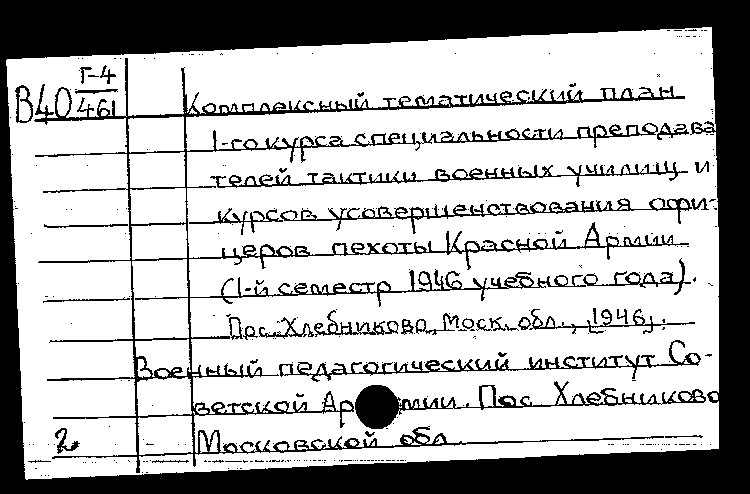 В40 Г-4/461
Комплексный тематический план
1-го курса специальности преподава
телей тактики военных училищ и
курсов усовершенствования офи-
церов пехоты Красной Армии
(1-й семестр 1946 учебного года).
Пос. Хлебниково, Моск. обл., [1946].
Военный педагогический институт Со-
ветской Армии. Пос Хлебниково
2 Московской обл.